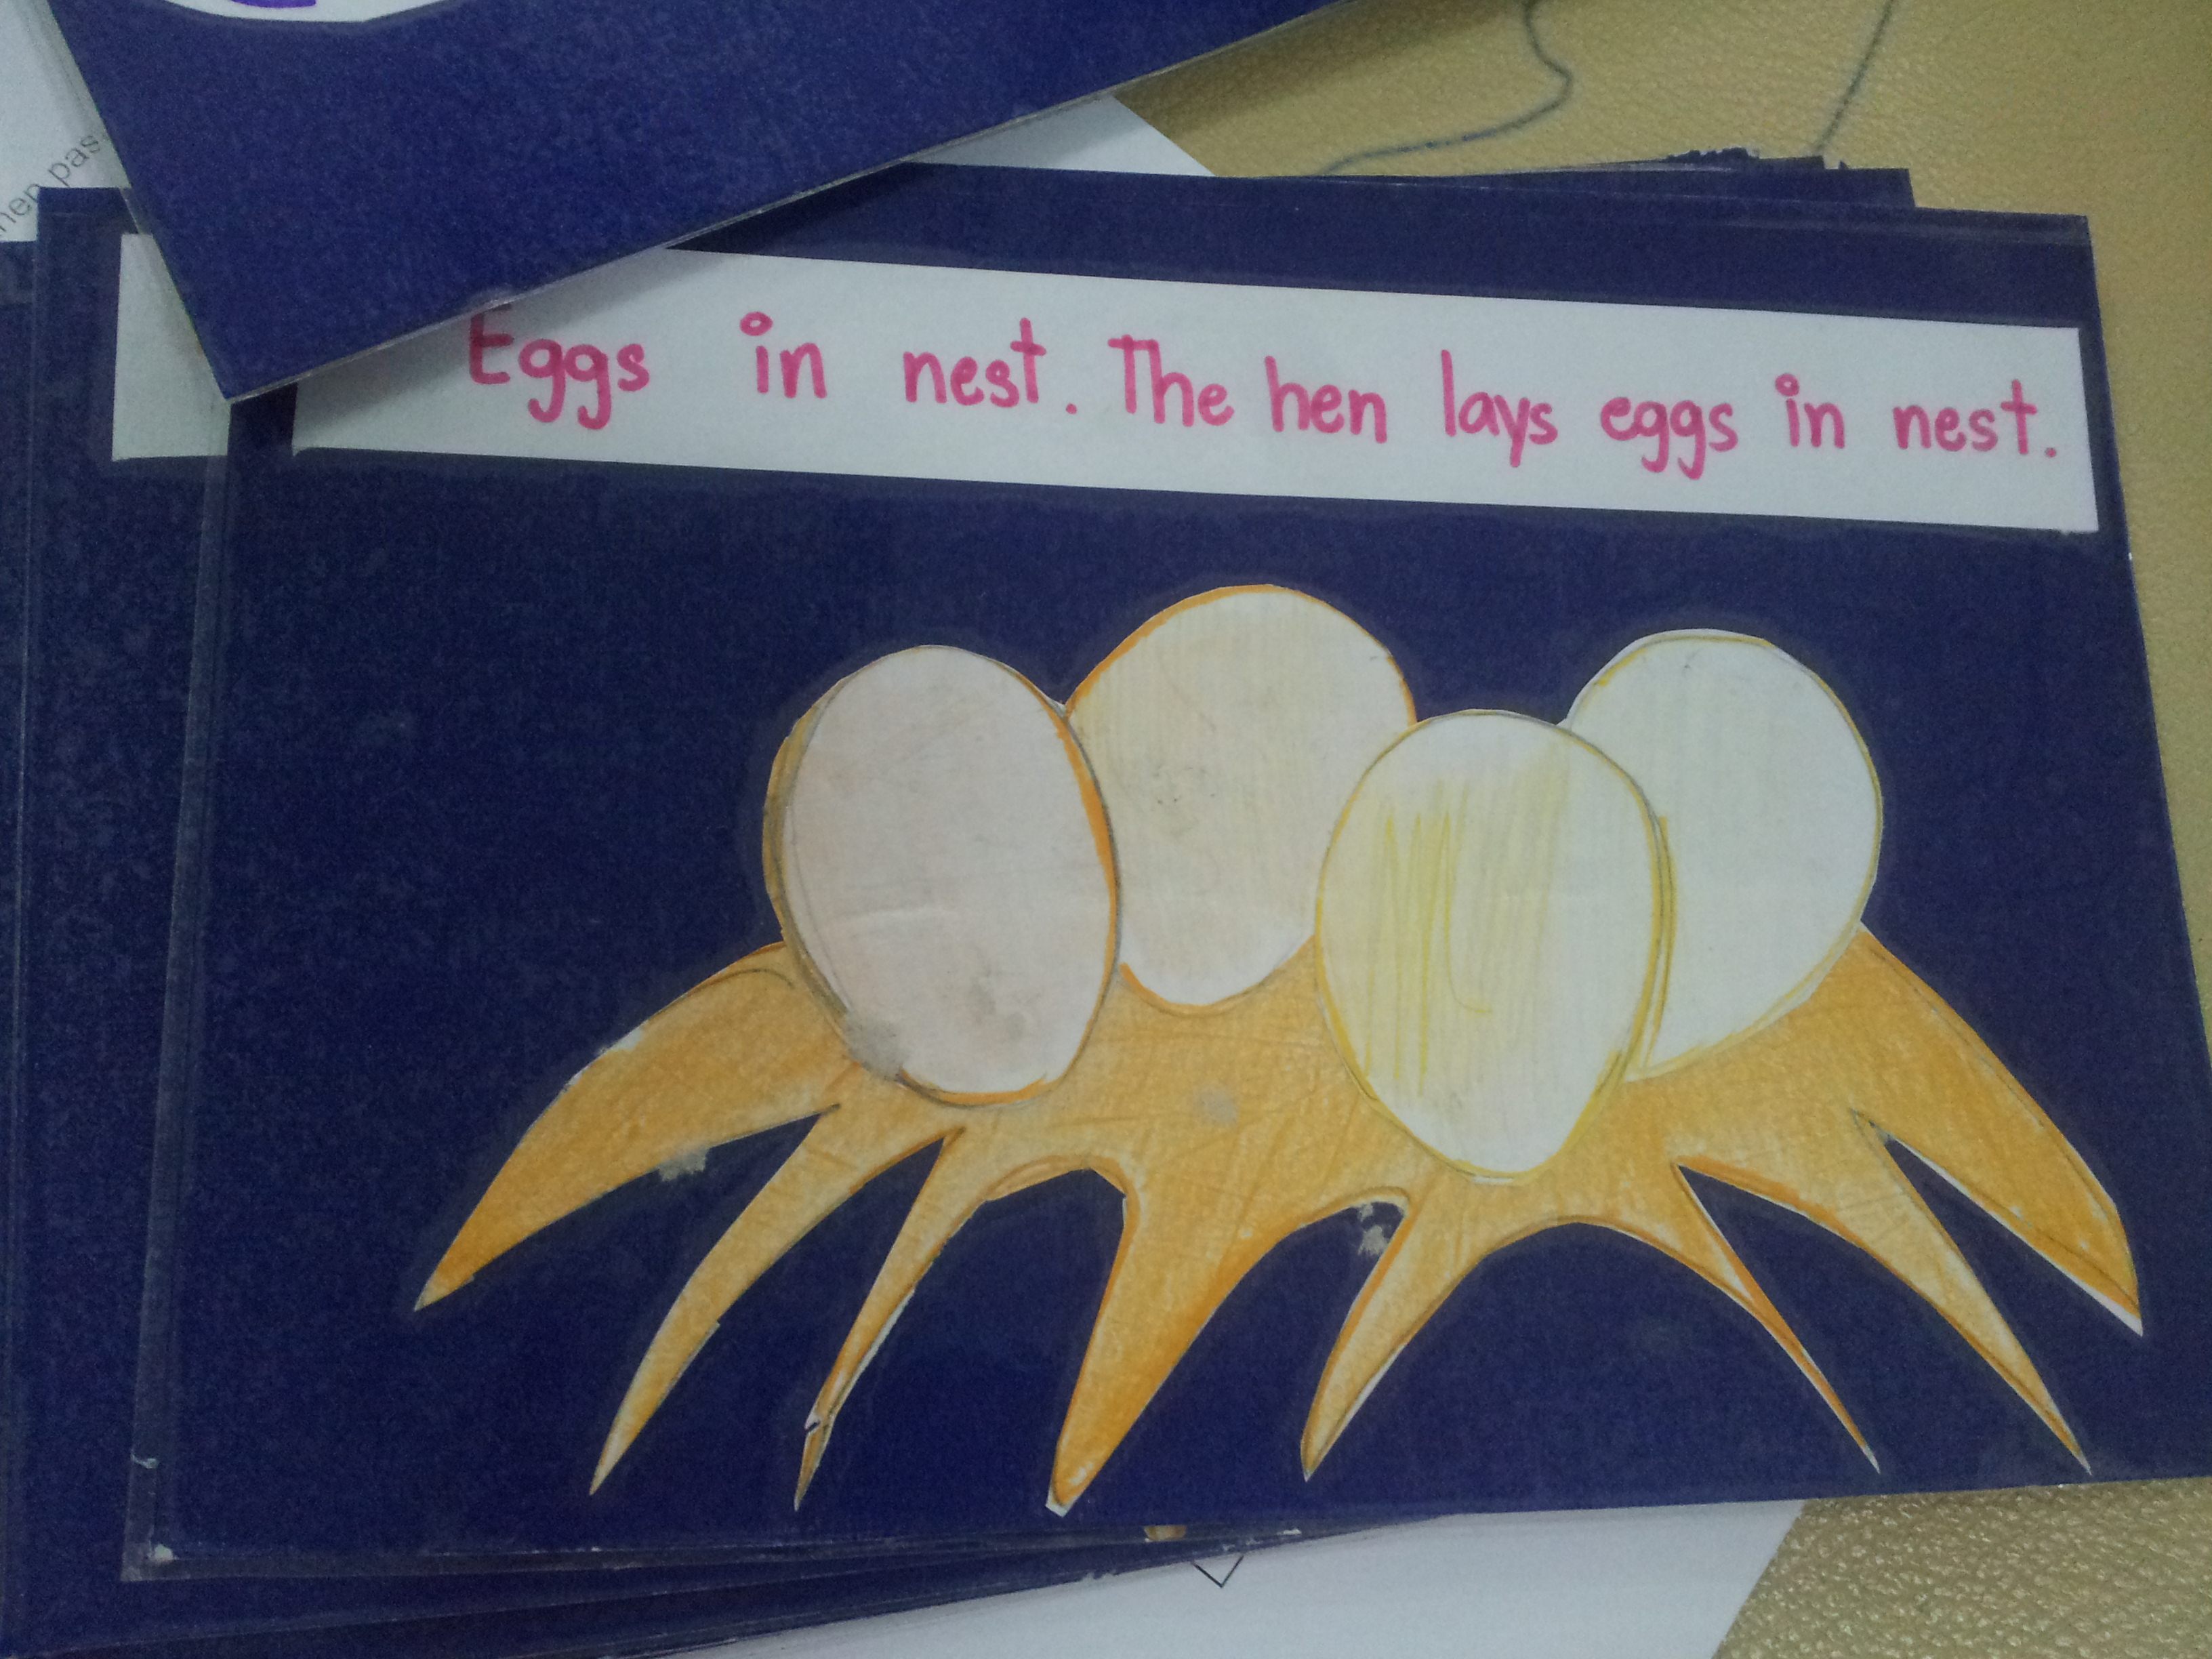 Eggs in nest. The hen lays eggs in nest.